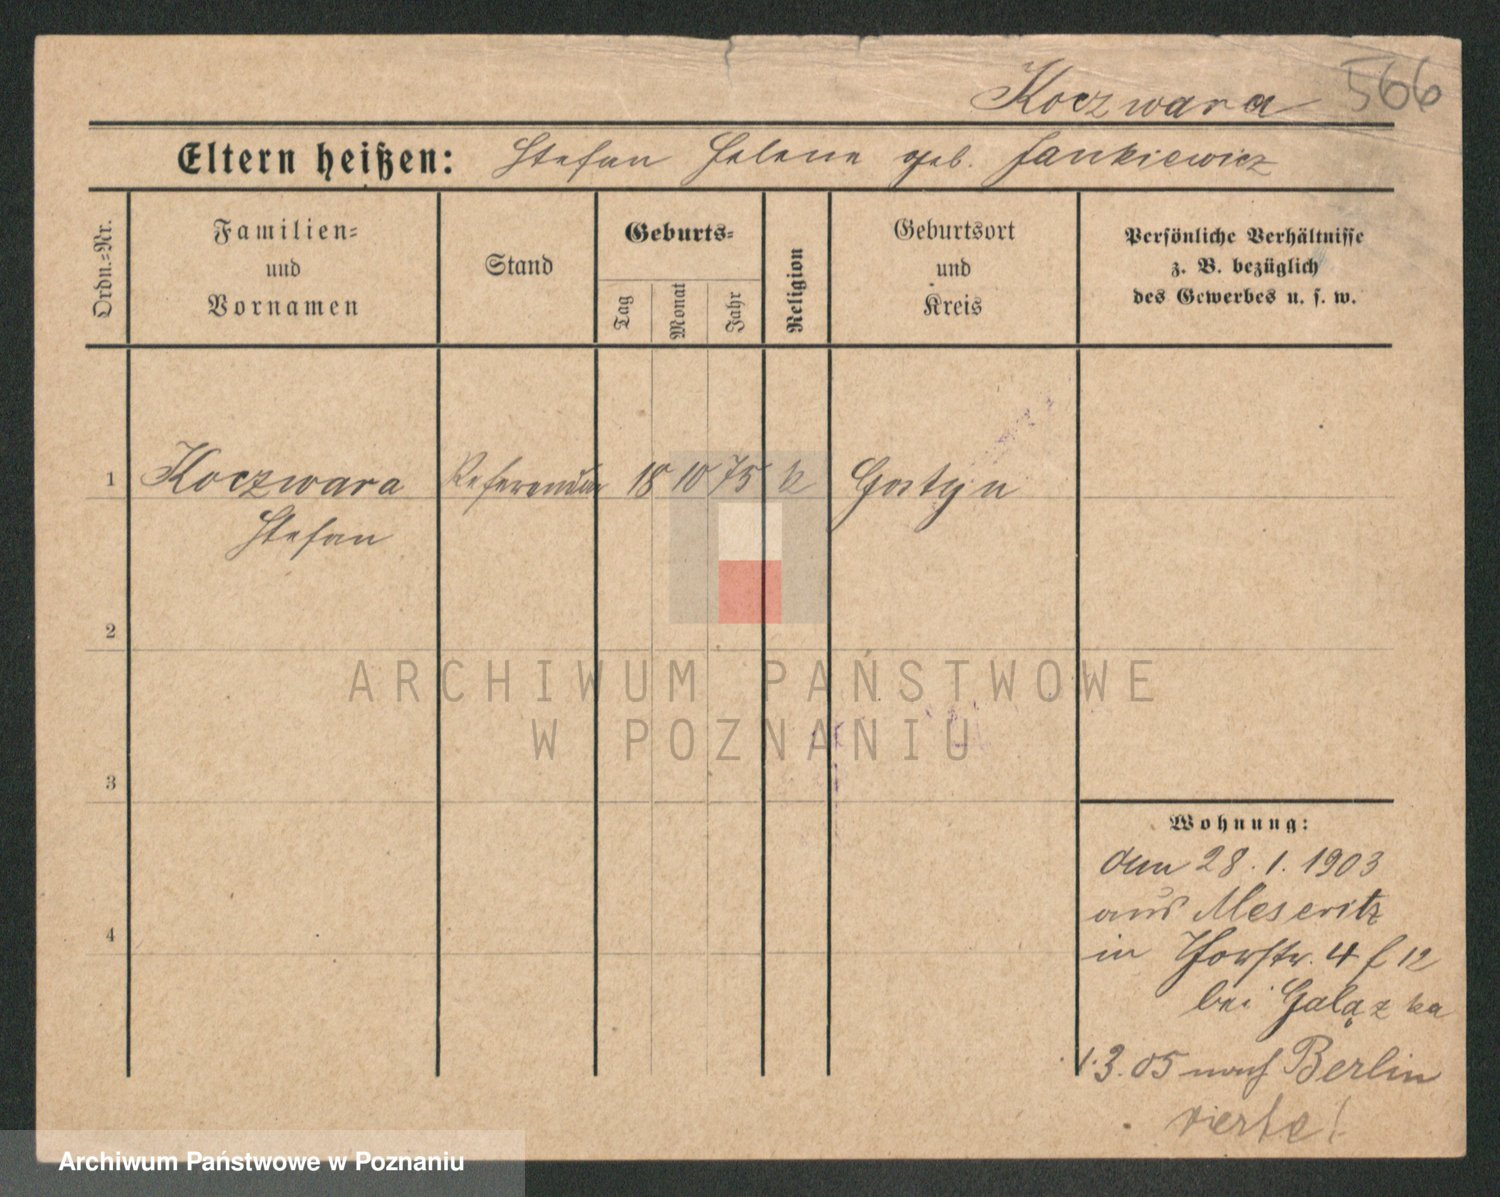 Koczwara 566
Eltern heißen: Stefan Helene geb. Jankiewicz
Ordn.-Nr.
Familien-
und
Vornamen
Stand
Geburts-
Tag
Monat
Jahr
Religion
Geburtsort
und
Kreis
Persönliche Verhältnisse
z. B. bezüglich
des Gewerbes u. s. w.
1 Koczwara Referendar 18 10 75 k Gostyn
Stefan
2
3
4
Wohnung:
den 28. 1. 1903
aus Meseritz
in Thorstr. 4 12
bei Galązka
1.3.05 nach Berlin
ARCHIWUM PAŃSTWOWE
W POZNANIU
Archiwum Państwowe w Poznaniu